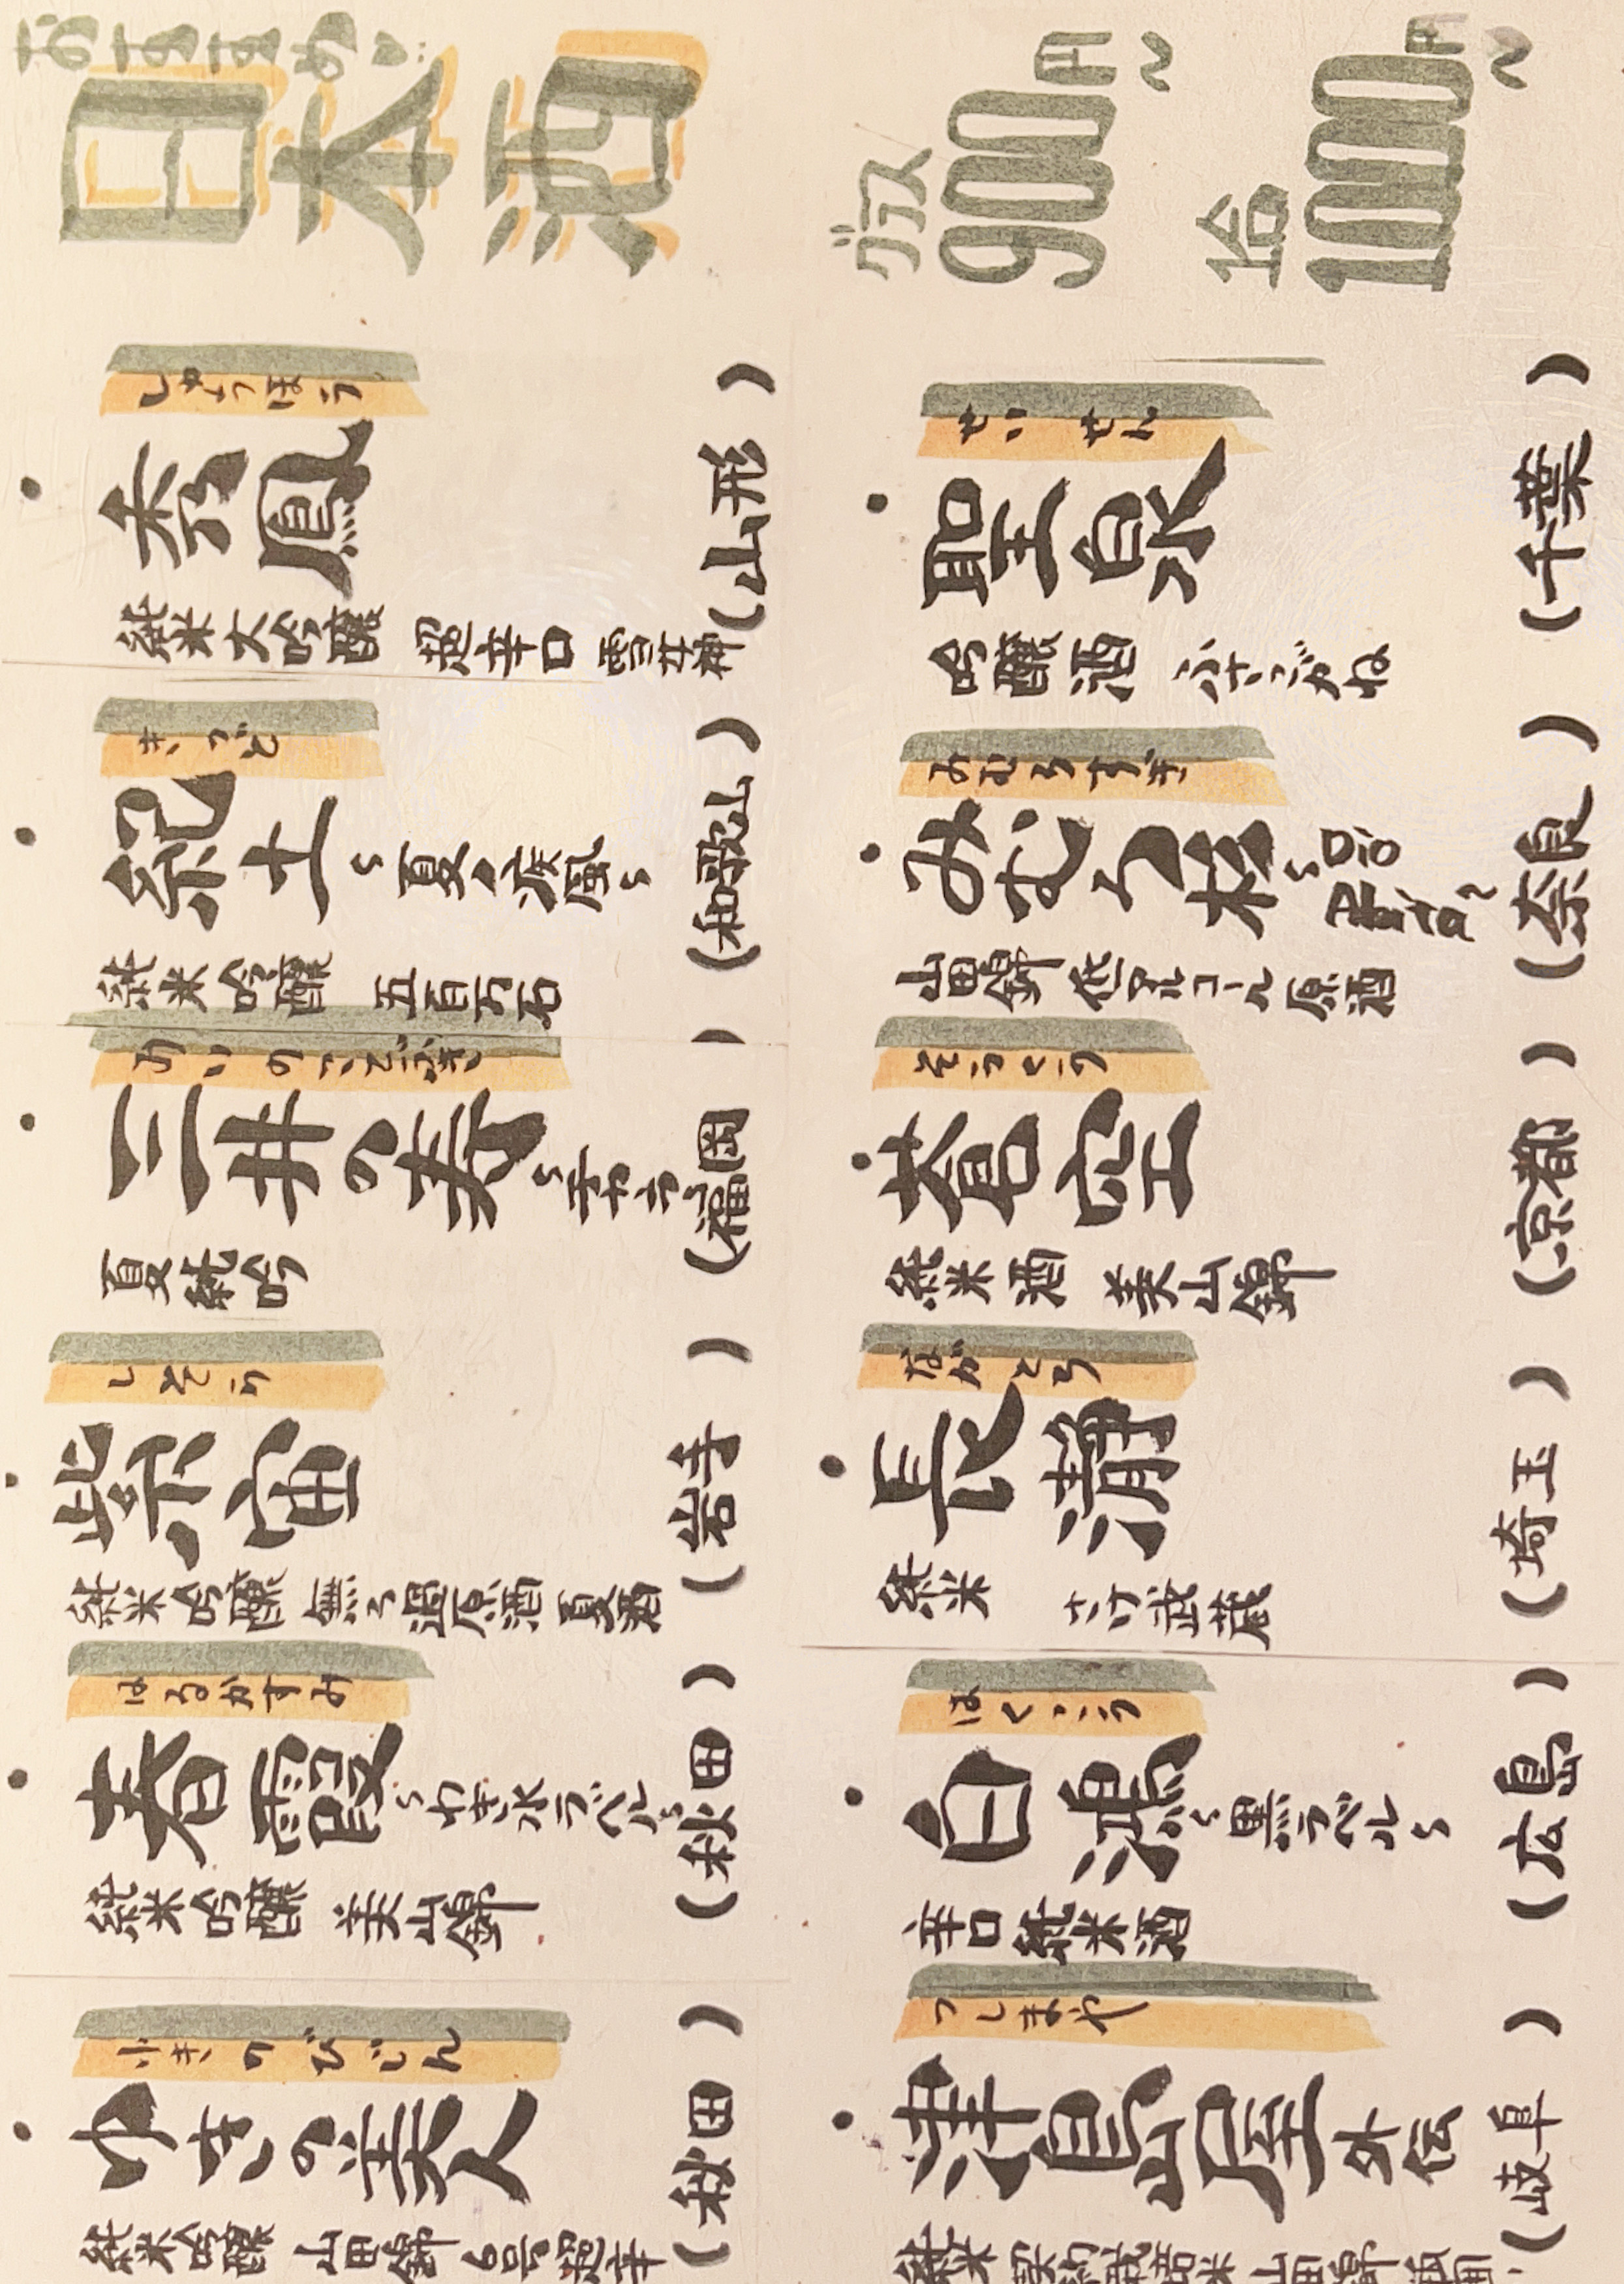 おすすめ♡
日本酒
しゅうほう
秀鳳 (山形)
純米大吟醸 超辛口 雪女神
きっど
紀土 ～夏ノ疾風～ (和歌山)
純米吟醸 五百万石
みいのことぶき
三井の寿 ～チカーラ～ (福岡)
夏純吟
しそら
紫宙 (岩手)
純米吟醸 無ろ過原酒 夏酒
はるかすみ
春霞 ～カキ氷ラベル～ (秋田)
純米吟醸 美山錦
ゆきのびじん
ゆきの美人 (秋田)
純米吟醸 山田錦 6号超辛
グラス 900円～ 1合 1000円～
せいせん
聖泉 (千葉)
吟醸酒 ふさこがね
みむろすぎ
みむろ杉 (奈良)
山田錦 低アルコール原酒
そうくう
蒼空 (京都)
純米酒 美山錦
ながとろ
長瀞 (埼玉)
純米 さけ武蔵
はくこう
白鴻 ～黒ラベル～ (広島)
辛口純米酒
つしまや
津島屋 外伝 (岐阜)
純米 契約栽培米 山田錦